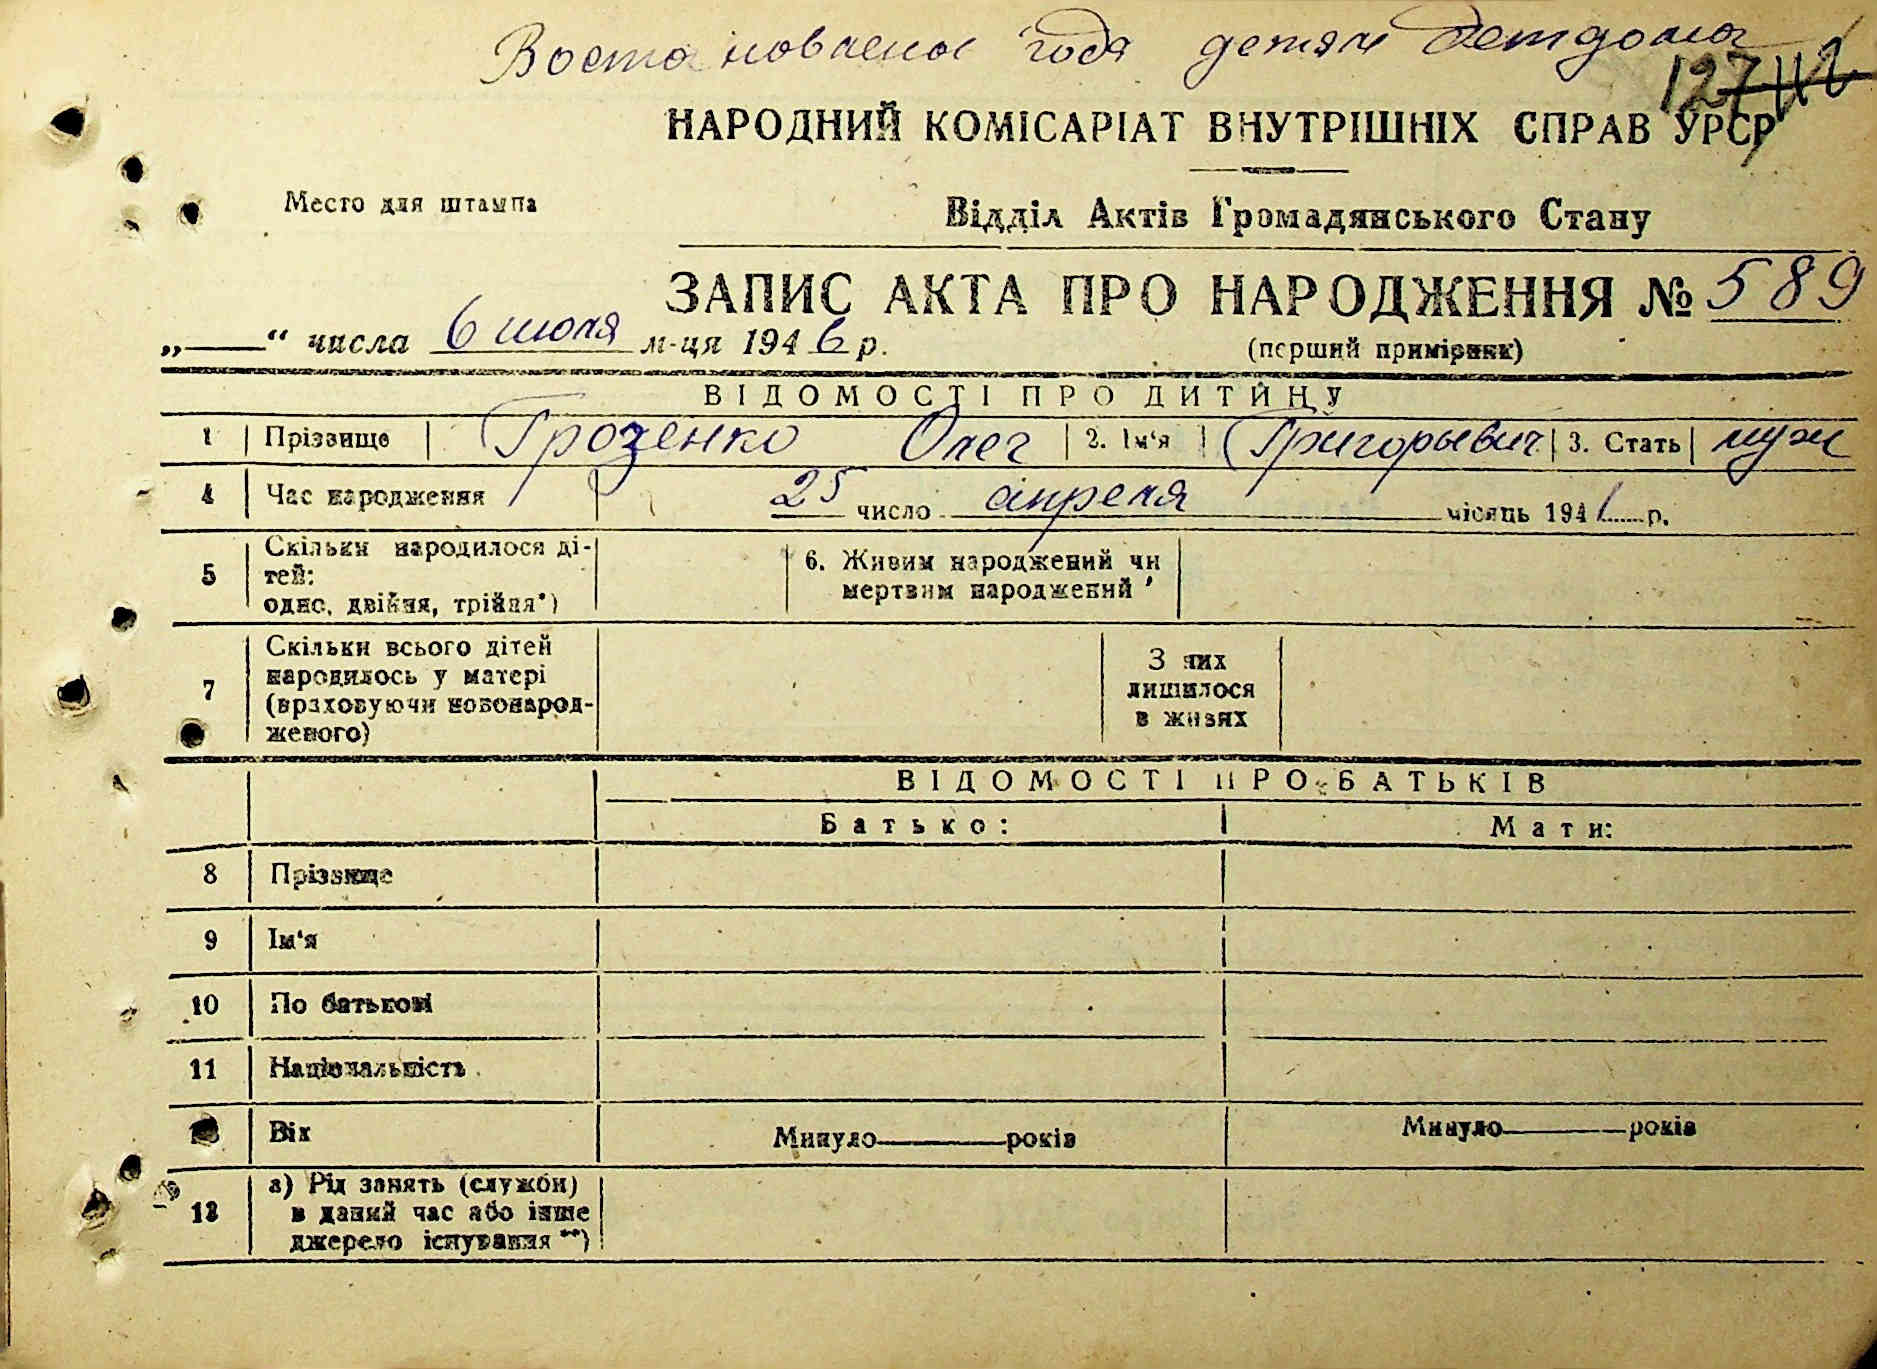 Востановлена года детям детдома
127
НАРОДНИЙ КОМІСАРІАТ ВНУТРІШНІХ СПРАВ УРСР
Место для штампа
Відділ Актів Громадянського Стану
ЗАПИС АКТА ПРО НАРОДЖЕННЯ № 589
„——“ числа 6 июля м-ця 1946 р.
(перший примірник)
ВІДОМОСТІ ПРО ДИТИНУ
1 Прізвище Грозенко Олег 2. Ім‘я Григорьевич 3. Стать муж
4 Час народження 25 число апреля місяць 1941 р.
5 Скільки народилося ді-
тей:
одно, двійня, трійня*)
6. Живим народжений чи
мертвим народжений
7 Скільки всього дітей
народилось у матері
(враховуючи новонарод-
женого)
З них
лишилося
в живих
ВІДОМОСТІ ПРО БАТЬКІВ
Батько: Мати:
8 Прізвище
9 Ім‘я
10 По батькові
11 Національність
Вік Минуло———років Минуло———років
13 а) Рід занять (служби)
в даний час або інше
джерело існування **)